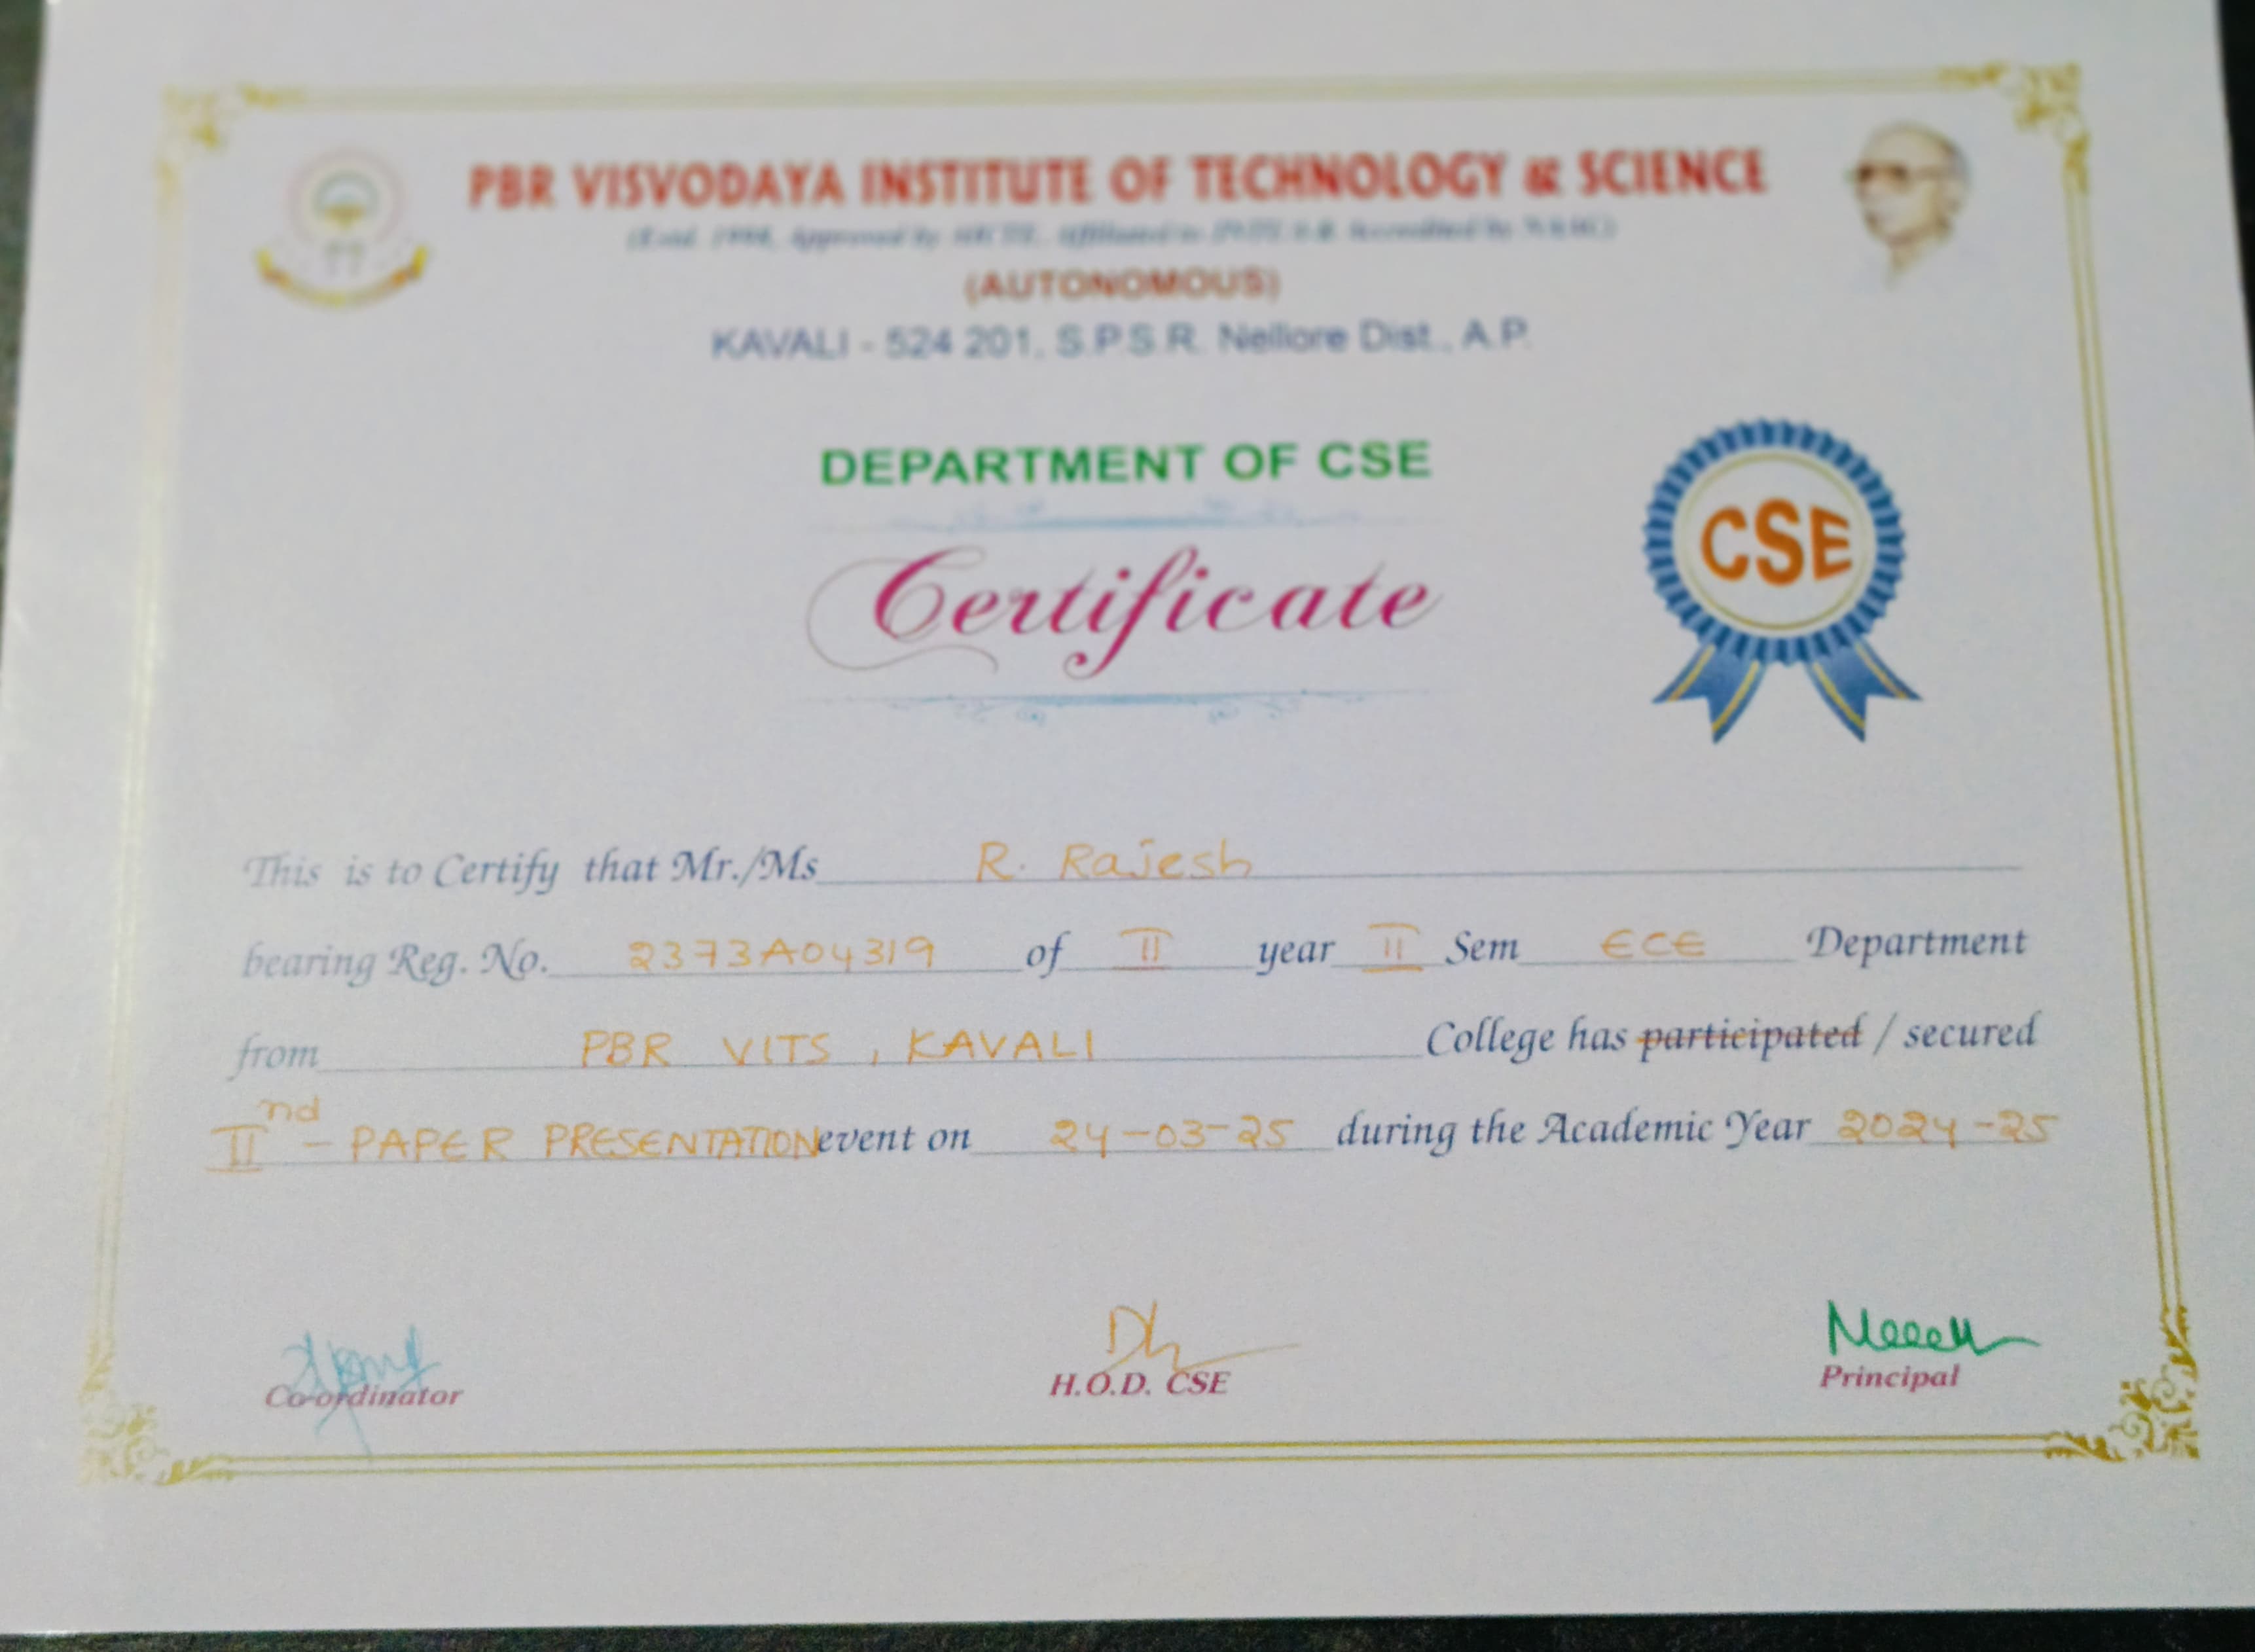 PBR VISVODAYA INSTITUTE OF TECHNOLOGY & SCIENCE
(Estd. 1998, Approved by AICTE, Affiliated to Accredited by NAAC)
(AUTONOMOUS)
KAVALI - 524 201, S.P.S.R. Nellore Dist., A.P.
DEPARTMENT OF CSE
Certificate
CSE
This is to Certify that Mr./Ms R. Rajesh
bearing Reg. No. 2373A04319 of II year II Sem ECE Department
from PBR VITS, KAVALI College has participated / secured
IInd - PAPER PRESENTATION event on 24-03-25 during the Academic Year 2024-25
Co-ordinator
H.O.D. CSE
Principal